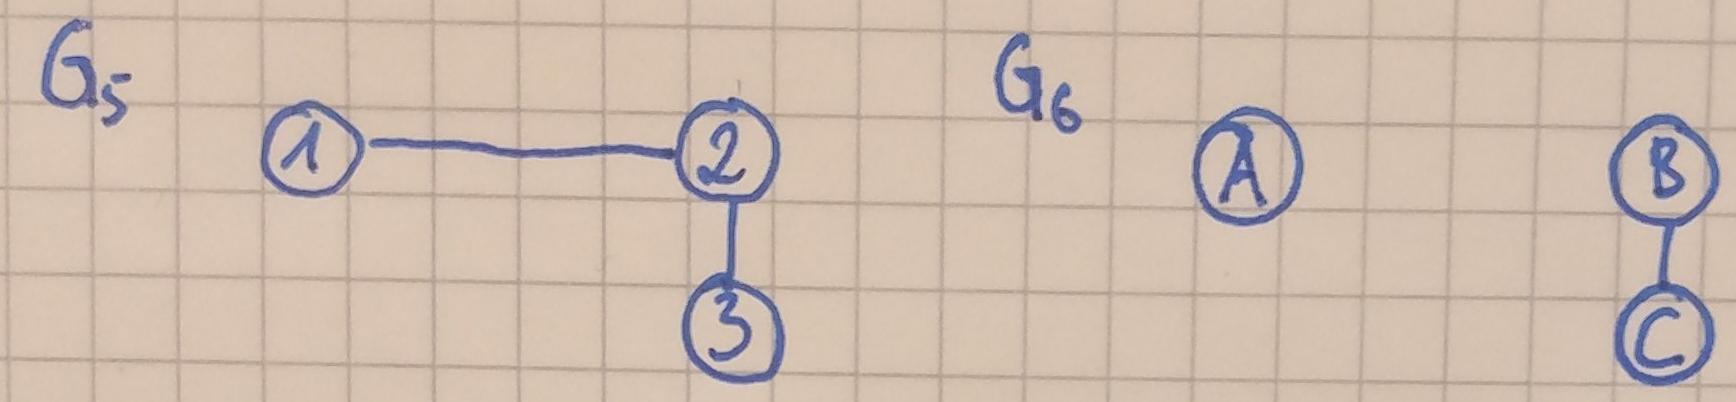 G₅
1 2
3
G₆
A B
C